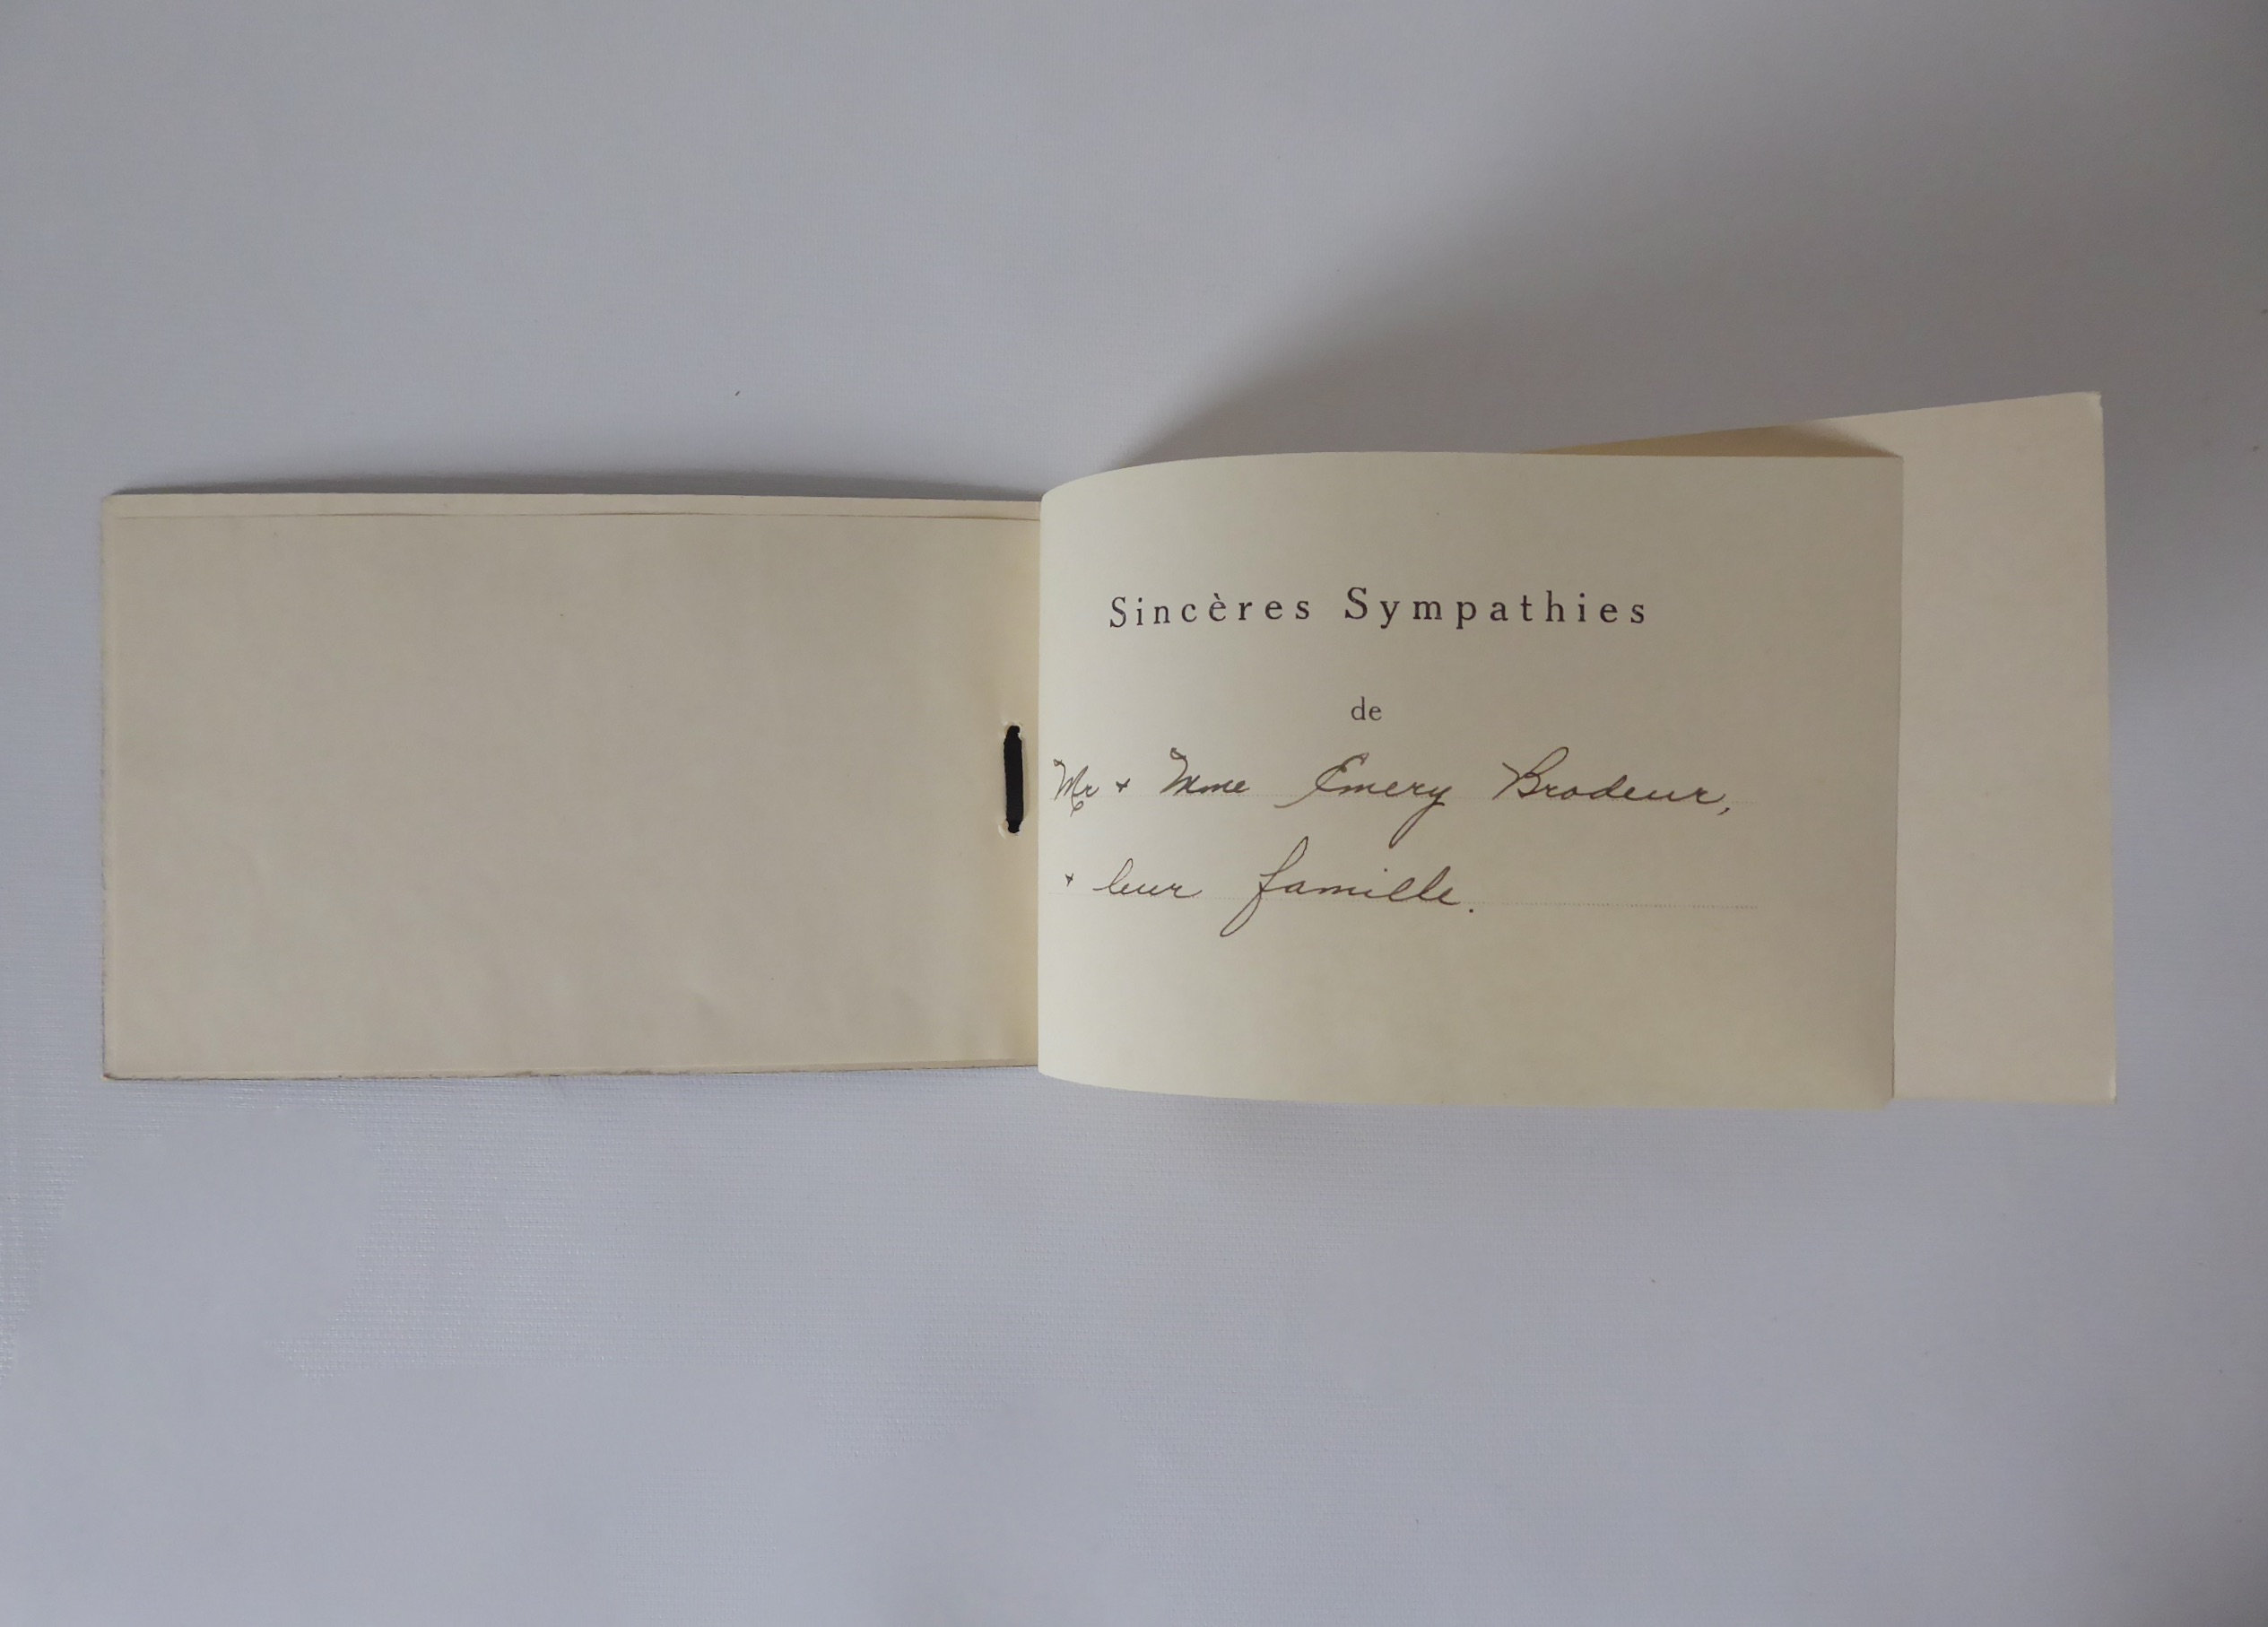 Sincères Sympathies
de
Mr + Mme Emery Brodeur,
+ leur famille.